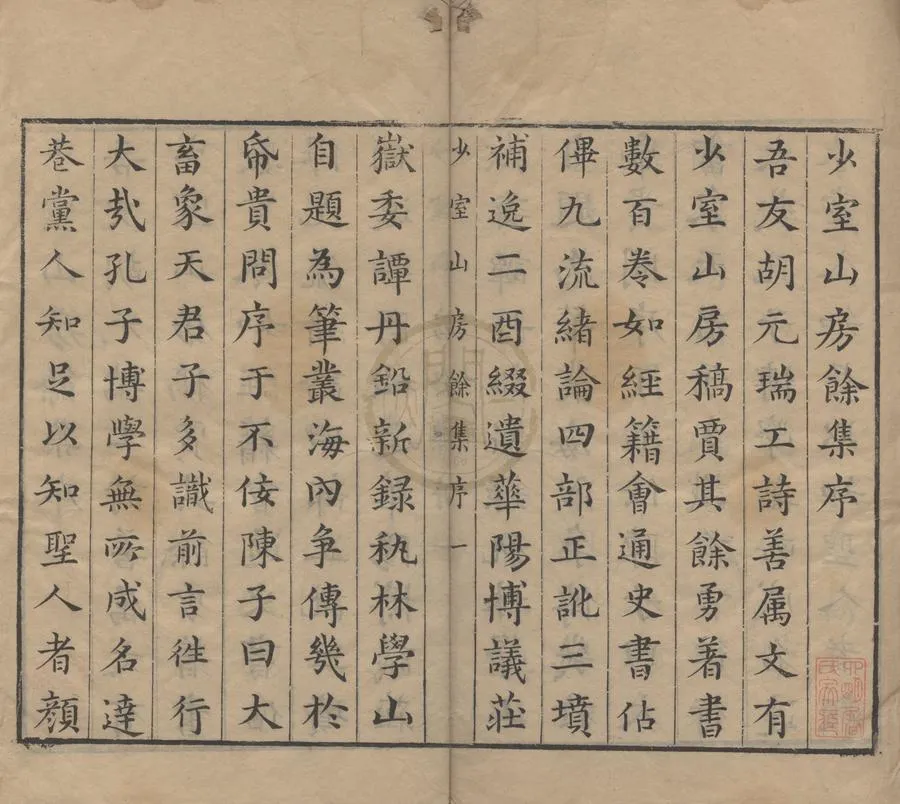 少室山房餘集序
吾友胡元瑞工詩善属文有
少室山房稿賈其餘勇著書
數百卷如經籍會通史書佔
㑻九流緒論四部正訛三墳
補逸二酉綴遺華陽博議莊
少室山房餘集序 一
嶽委譚丹鉛新録秇林學山
自題為筆叢海內争傳幾於
帋貴問序于不佞陳子曰大
畜象天君子多識前言徃行
大㢤孔子博學無所成名達
巷黨人知足以知聖人者顔